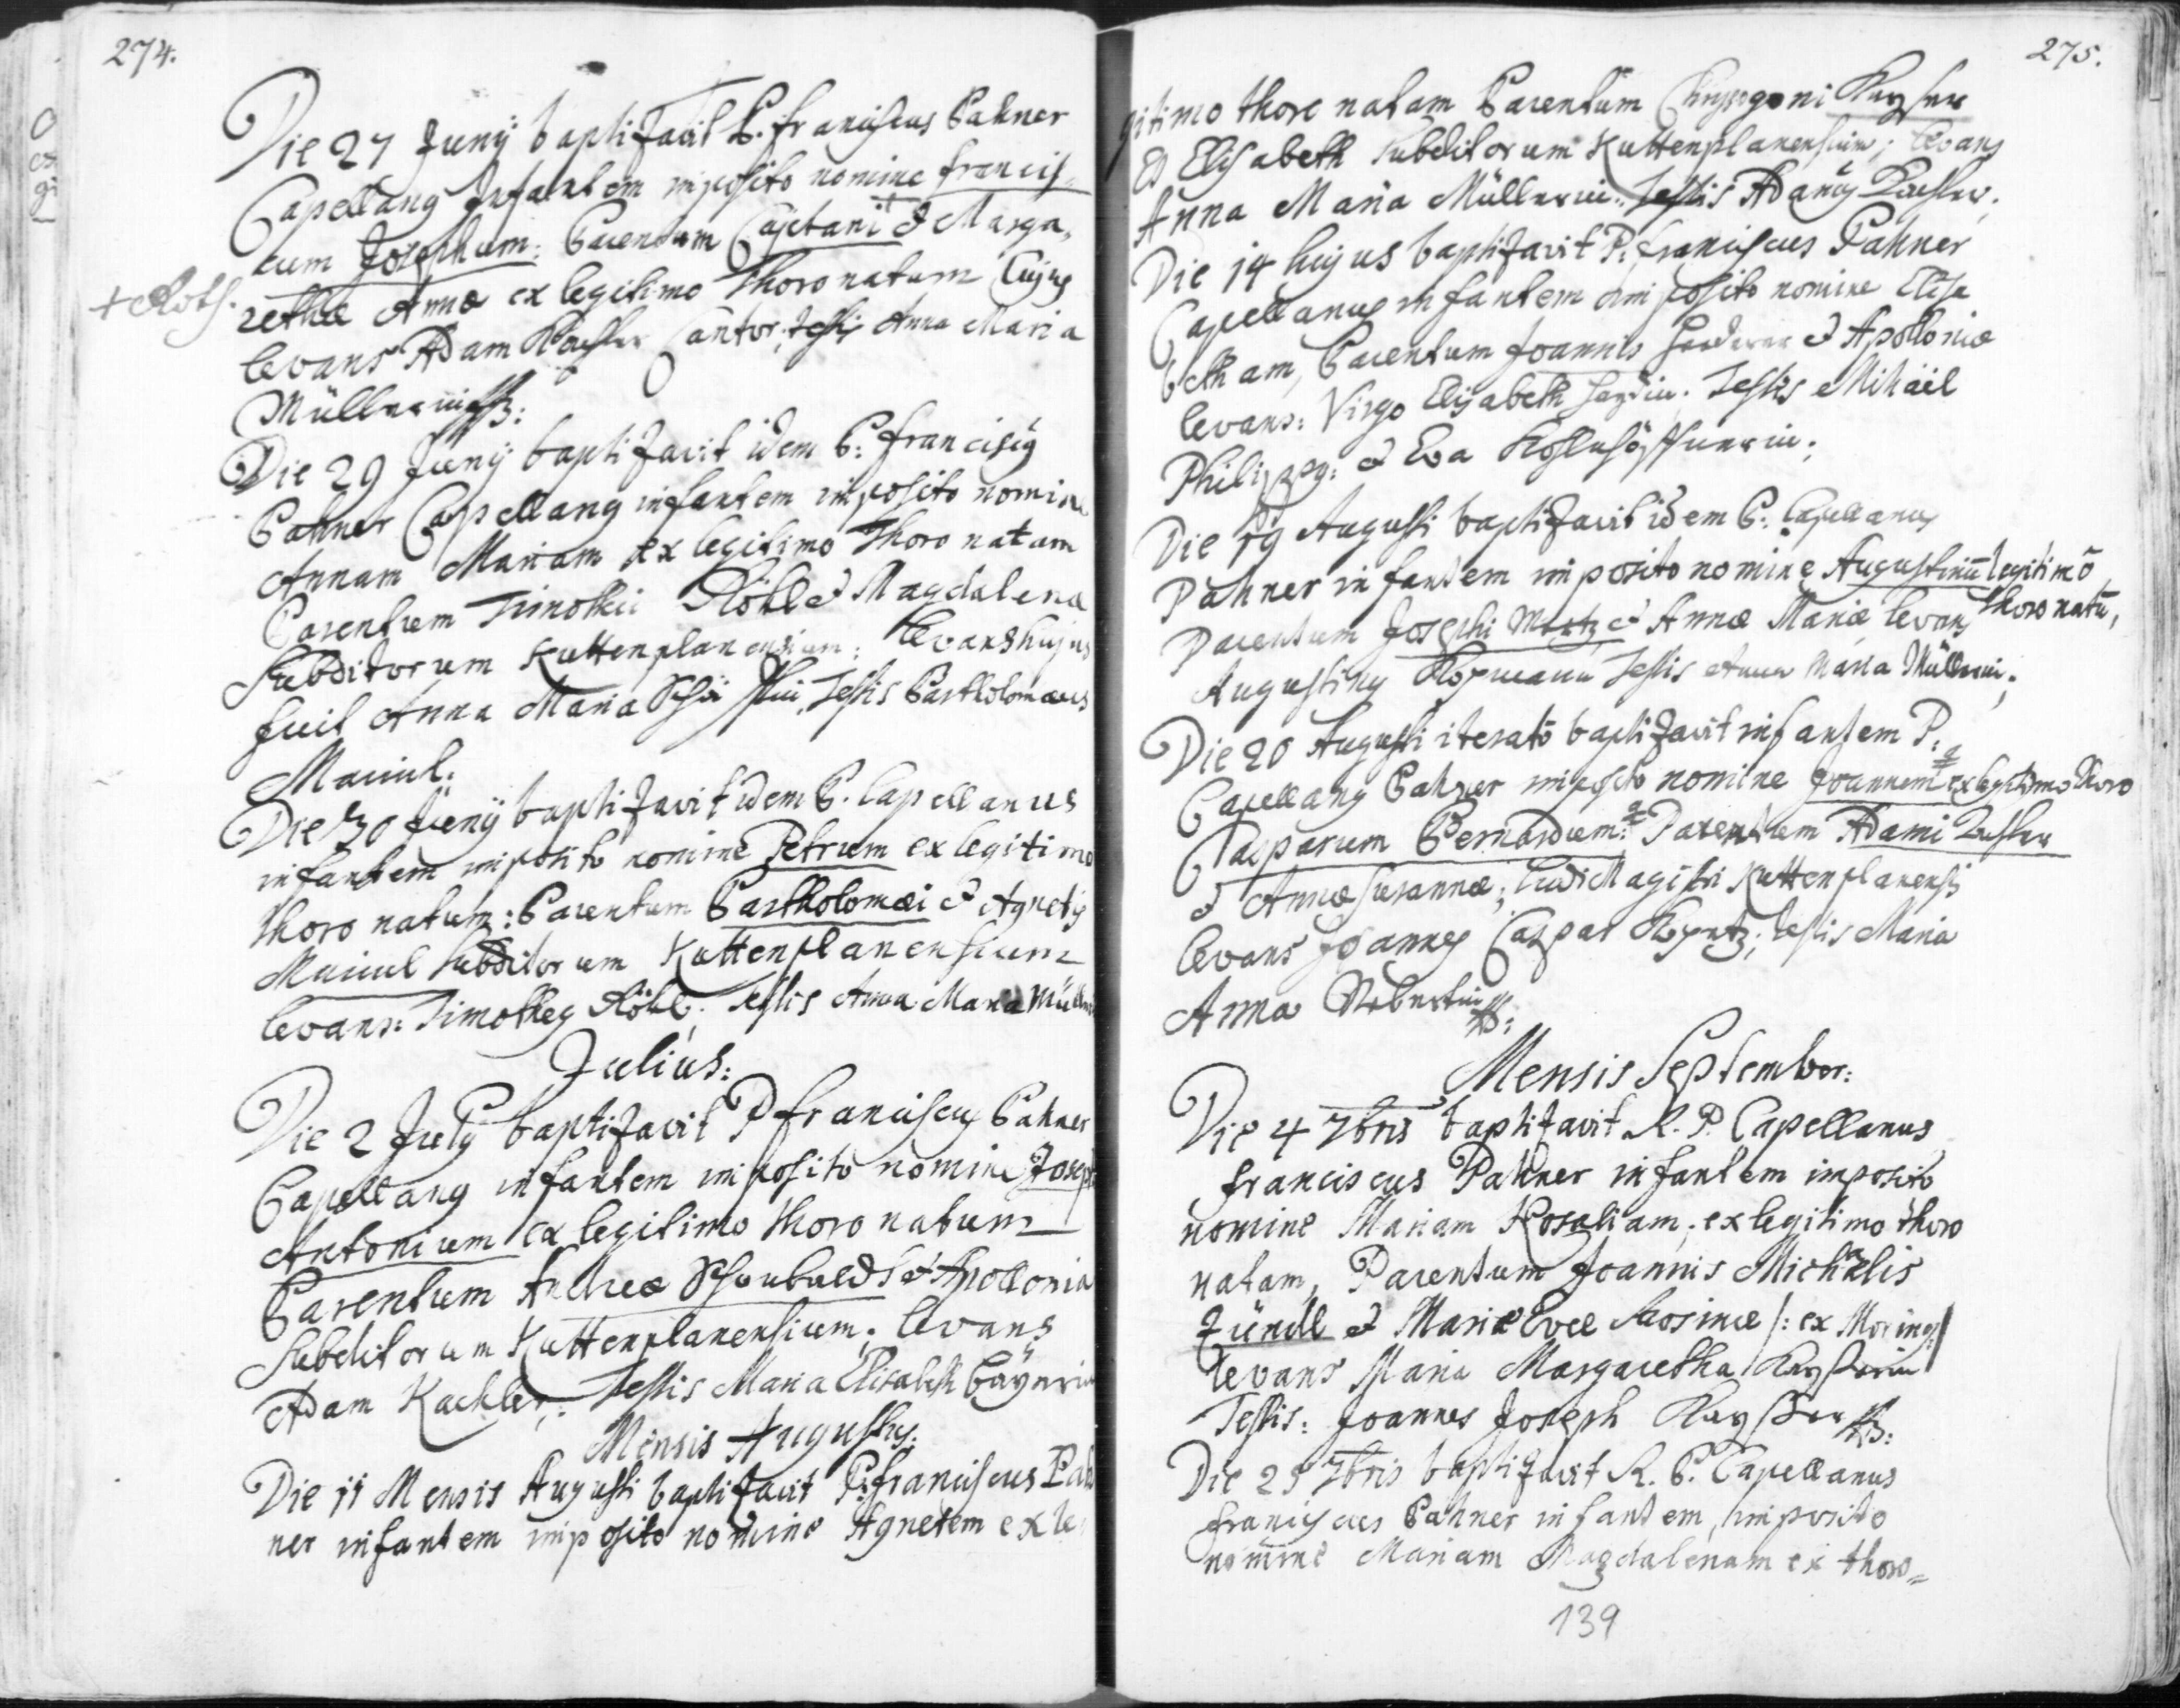 274.
Die 27 Junÿ baptizavit P. Franciscus Pahner
Capellanus Infantem imposito nomine Francis=
cum Josephum: Parentum Cajetani & Marga,
+ Roth.
rethæ Annæ ex legitimo thoro natum Cujus
levans Adam Kachler Cantor, testis Anna Maria
Müllerin
Die 29 Junÿ baptizavit idem P: Franciscus
Pahner Capellanus infantem imposito nomine
Annam Mariam ex legitimo thoro natam
Parentum Timothei Röhl & Magdalena
Subditorum Kuttenplanensium: levans hujus
fuit Anna Maria Testis Bartholomæus
Die 30 Junÿ baptizavit idem P. Capellanus
infantem imposito nomine Petrum ex legitimo
thoro natum: Parentum Bartholomæi & Agnetis
Subditorum Kuttenplanensium
levans: Timotheus Röhl; Testis Anna Maria
Julius:
Die 2 Julÿ baptizavit P Franciscus Pahner
Capellanus infantem imposito nomine Joseph
Antonium ex legitimo thoro natum
Parentum Andreæ & Apollonia
Subditorum Kuttenplanensium; levans
Adam Kachler; Testis Maria Elisabeth
Mensis Augustus:
Die 11 Mensis Augusti baptizavit P: Franciscus Pah
ner infantem imposito nomine Agnetem ex le
275.
gitimo thoro natam Parentum Chrysogoni Kayser
& Elisabeth subditorum Kuttenplanensium; levans
Anna Maria Müllerin: Testis Adamus Kachler.
Die 14 hujus baptizavit P: Franciscus Pahner
Capellanus infantem imposito nomine Elisa
betham, Parentum Joannis & Apolloniæ
levans: Virgo Elisabeth Testis Mihaël
& Eva
Die 19 Augusti baptizavit idem P: Capellanus
Pahner infantem imposito nomine Augustinū legitimō
thoro natū,
Parentum Josephi & Annæ Mariæ levans
Augustinus Testis Anna Maria Müllerin;
Die 20 Augusti iteratō baptizavit infantem P.
Capellanus Pahner imposito nomine Joannem ex legitimo thoro
Casparum Bernardum: Parentum Adami Kachler
& Annæ Susannæ; Ludi Magistri Kuttenplanensis
levans Joannes Caspar; testis Maria
Anna
Mensis September:
Die 4 7bris baptizavit R. P. Capellanus
Franciscus Pahner infantem imposito
nomine Mariam Rosaliam; ex legitimo thoro
natam, Parentum Joannis Michaelis
Zündl & Mariæ Evæ Rosinæ /: ex :/
levans Maria Margaretha Kaysserin
Testis: Joannes Joseph Kaysser
Die 25 7bris baptizavit R. P. Capellanus
Franciscus Pahner infantem, imposito
nomine Mariam Magdalenam ex thoro=
139